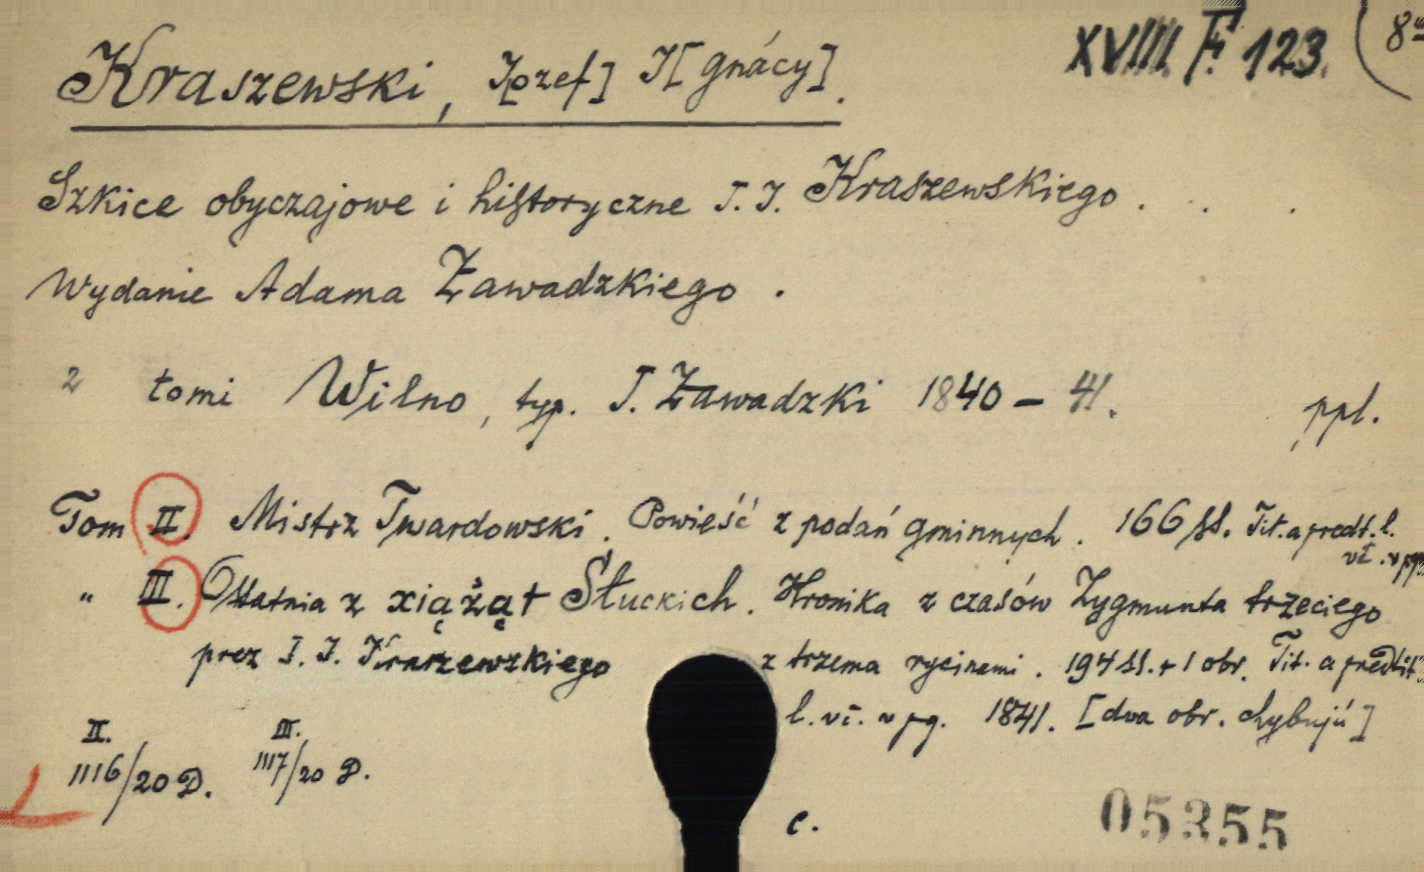 Kraszewski, J[ozef] I[gnácy].
XVIII F. 123.
Szkice obyczajowe i historyczne J. I. Kraszewskiego . . .
Wydanie Adama Zawadzkiego.
2 tomi Wilno, typ. J. Zawadzki 1840 – 41. ppl.
Tom II. Mistrz Twardowski. Powieść z podań gminnych. 166 ss. Tit. a predt. l.
vč. v pg.
" III. Ostatnia z xiążąt Słuckich. Kronika z czasów Zygmunta trzeciego
prez J. I. Kraszewskiego z trzema rycinami. 194 ss. + 1 obr. Tit. a predtit.
l. vč. v pg. 1841. [dva obr. chybujú]
II. III.
1116/20 D. 1117/20 D.
c.
05355